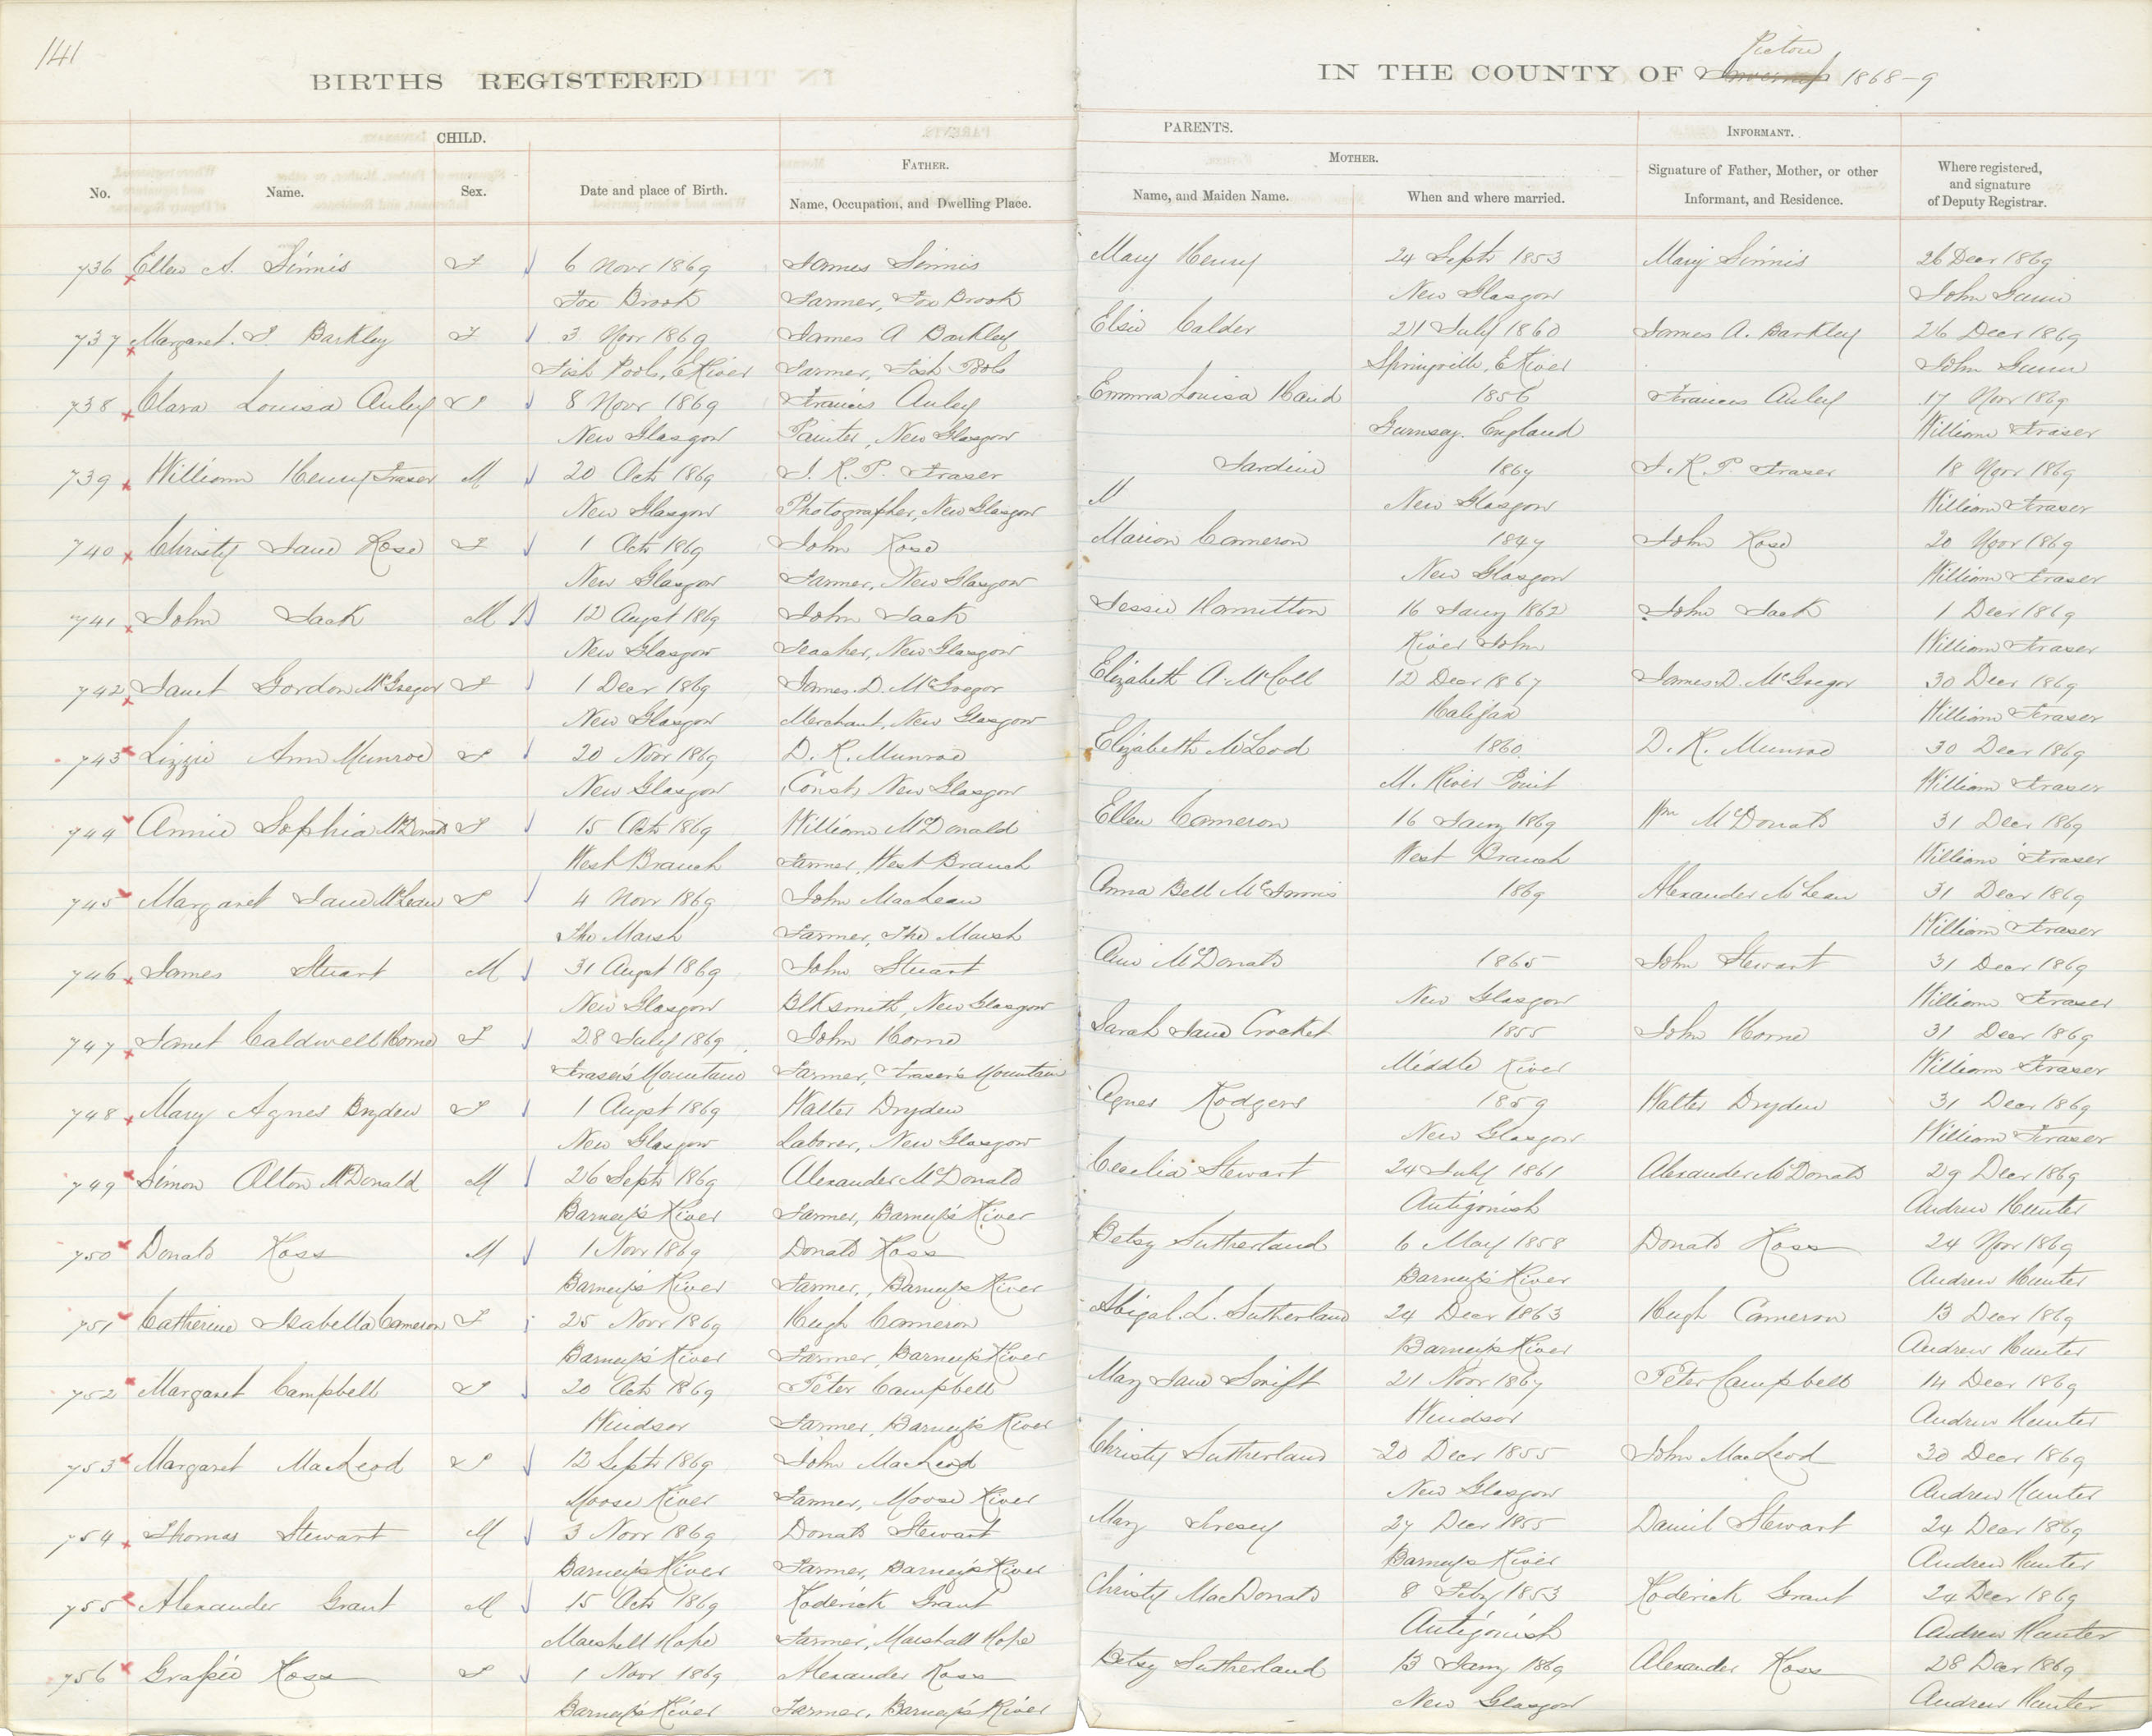 141
BIRTHS REGISTERED
IN THE COUNTY OF Pictou 1868-9
CHILD.
PARENTS.
INFORMANT.
FATHER.
MOTHER.
No. Name. Sex. Date and place of Birth. Name, Occupation, and Dwelling Place. Name, and Maiden Name. When and where married. Signature of Father, Mother, or other Informant, and Residence. Where registered, and signature of Deputy Registrar.
736 Ellen A. Sinnis F 6 Novr 1869 James Sinnis Mary Henry 24 Septr 1853 Mary Sinnis 26 Decr 1869
Fox Brook Farmer, Fox Brook New Glasgow John Gunn
737 Margaret. J Barkley F 3 Novr 1869 James A Barkley Elsie Calder 21 July 1860 James A. Barkley 26 Decr 1869
Fish Pools, E River Farmer, Fish Pools Springville, E River John Gunn
738 Clara Louisa Auley F 8 Novr 1869 Francis Auley Emma Louisa 1856 Francis Auley 17 Novr 1869
New Glasgow Painter, New Glasgow Gurnsey. England William Fraser
739 William Henry Fraser M 20 Octr 1869 P. Fraser Jardine 1867 P Fraser 18 Novr 1869
New Glasgow Photographer, New Glasgow M New Glasgow William Fraser
740 Christy Jane Rose F 1 Octr 1869 John Rose Marion Cameron 1847 John Rose 20 Novr 1869
New Glasgow Farmer, New Glasgow New Glasgow William Fraser
741 John Jack M 12 Augst 1869 John Jack Jessie Hamilton 16 Jany 1862 John Jack 1 Decr 1869
New Glasgow Teacher, New Glasgow River John William Fraser
742 Janet Gordon McGregor F 1 Decr 1869 James. D. McGregor Elizabeth A. McColl 12 Decr 1867 James. D. McGregor 30 Decr 1869
New Glasgow Merchant, New Glasgow Halifax William Fraser
743 Lizzie Ann Munroe F 20 Novr 1869 D. R. Munroe Elizabeth McLeod 1860 D. R. Munroe 30 Decr 1869
New Glasgow New Glasgow M. River Point William Fraser
744 Annie Sophia McDonald F 15 Octr 1869 William McDonald Ellen Cameron 16 Jany 1869 Wm McDonald 31 Decr 1869
West Branch Farmer, West Branch West Branch William Fraser
745 Margaret Jane McLean F 4 Novr 1869 John MacLean Anna Bell McInnis 1869 Alexander McLean 31 Decr 1869
The Marsh Farmer, The Marsh William Fraser
746 James Stuart M 31 Augst 1869 John Stuart Ann McDonald 1865 John Stewart 31 Decr 1869
New Glasgow Blksmith, New Glasgow New Glasgow William Fraser
747 Janet Caldwell Horne F 28 July 1869 John Horne Sarah Jane Crocket 1855 John Horne 31 Decr 1869
Fraser's Mountain Farmer, Fraser's Mountain Middle River William Fraser
748 Mary Agnes Dryden F 1 Augst 1869 Walter Dryden Agnes Rodgers 1859 Walter Dryden 31 Decr 1869
New Glasgow Laborer, New Glasgow New Glasgow William Fraser
749 Simon Alton McDonald M 26 Septr 1869 Alexander McDonald Cecilia Stewart 24 July 1861 Alexander McDonald 29 Decr 1869
Barney's River Farmer, Barney's River Antigonish Andrew Hunter
750 Donald Ross M 1 Novr 1869 Donald Ross Betsy Sutherland 6 May 1858 Donald Ross 24 Novr 1869
Barney's River Farmer, Barney's River Barney's River Andrew Hunter
751 Catherine Isabella Cameron F 25 Novr 1869 Hugh Cameron Abigal. L. Sutherland 24 Decr 1863 Hugh Cameron 13 Decr 1869
Barney's River Farmer, Barney's River Barney's River Andrew Hunter
752 Margaret Campbell F 20 Octr 1869 Peter Campbell Mary Jane Swift 21 Novr 1867 Peter Campbell 14 Decr 1869
Windsor Farmer, Barney's River Windsor Andrew Hunter
753 Margaret MacLeod F 12 Septr 1869 John MacLeod Christy Sutherland 20 Decr 1855 John MacLeod 30 Decr 1869
Moose River Farmer, Moose River New Glasgow Andrew Hunter
754 Thomas Stewart M 3 Novr 1869 Donald Stewart Mary 27 Decr 1855 Daniel Stewart 24 Decr 1869
Barney's River Farmer, Barney's River Barney's River Andrew Hunter
755 Alexander Grant M 15 Octr 1869 Roderick Grant Christy MacDonald 8 Feby 1853 Roderick Grant 24 Decr 1869
Marshall Hope Farmer, Marshall Hope Antigonish Andrew Hunter
756 Ross F 1 Novr 1869 Alexander Ross Betsy Sutherland 13 Jany 1869 Alexander Ross 28 Decr 1869
Barney's River Farmer, Barney's River New Glasgow Andrew Hunter